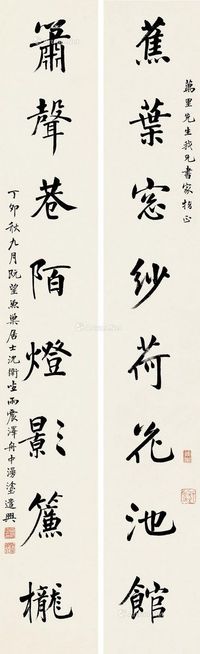 萬里先生我兄書家指正
蕉葉窓紗荷花池館
簫聲巷陌燈影簾櫳
丁卯秋九月既望魚巢居士沈衛坐雨震澤舟中漫塗遣興